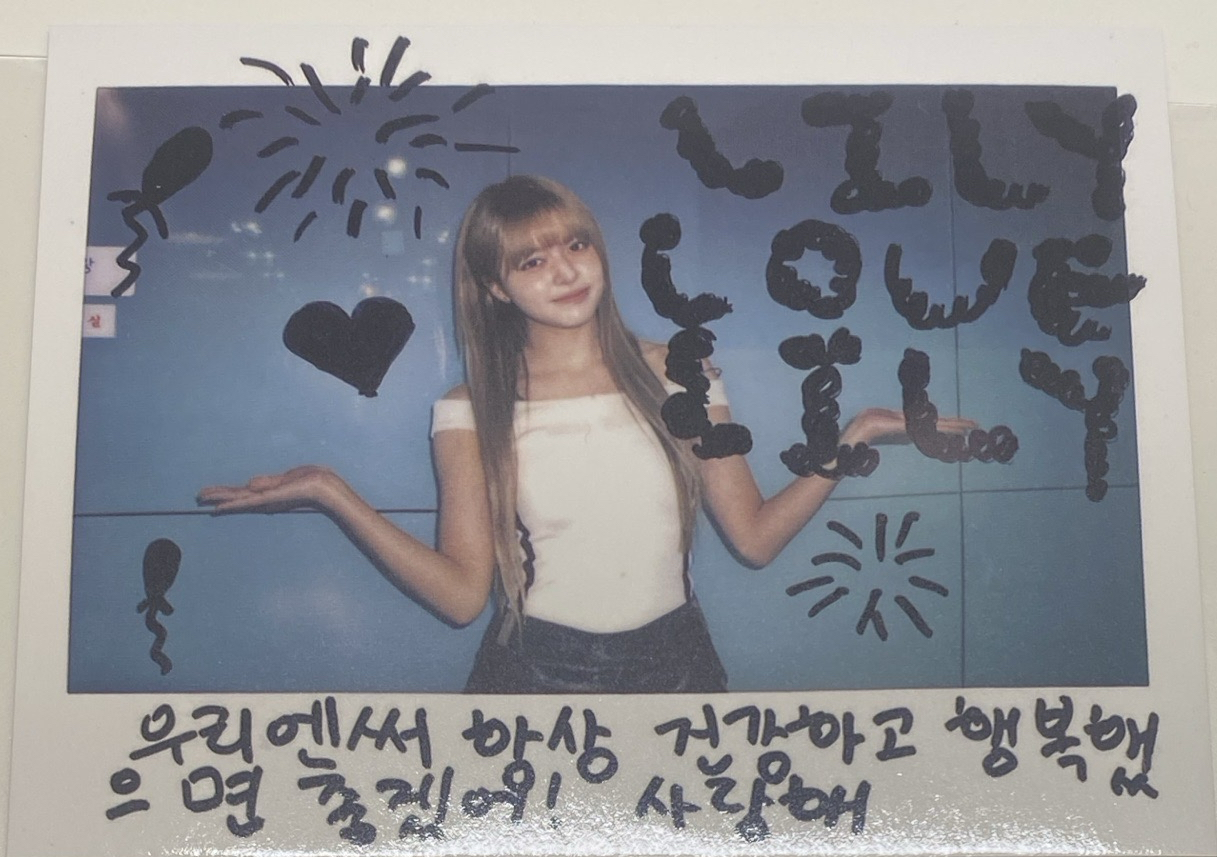 LILY
LOVE
실
LILY
우리엔써 항상 건강하고 행복했
으면 좋겠어! 사랑해